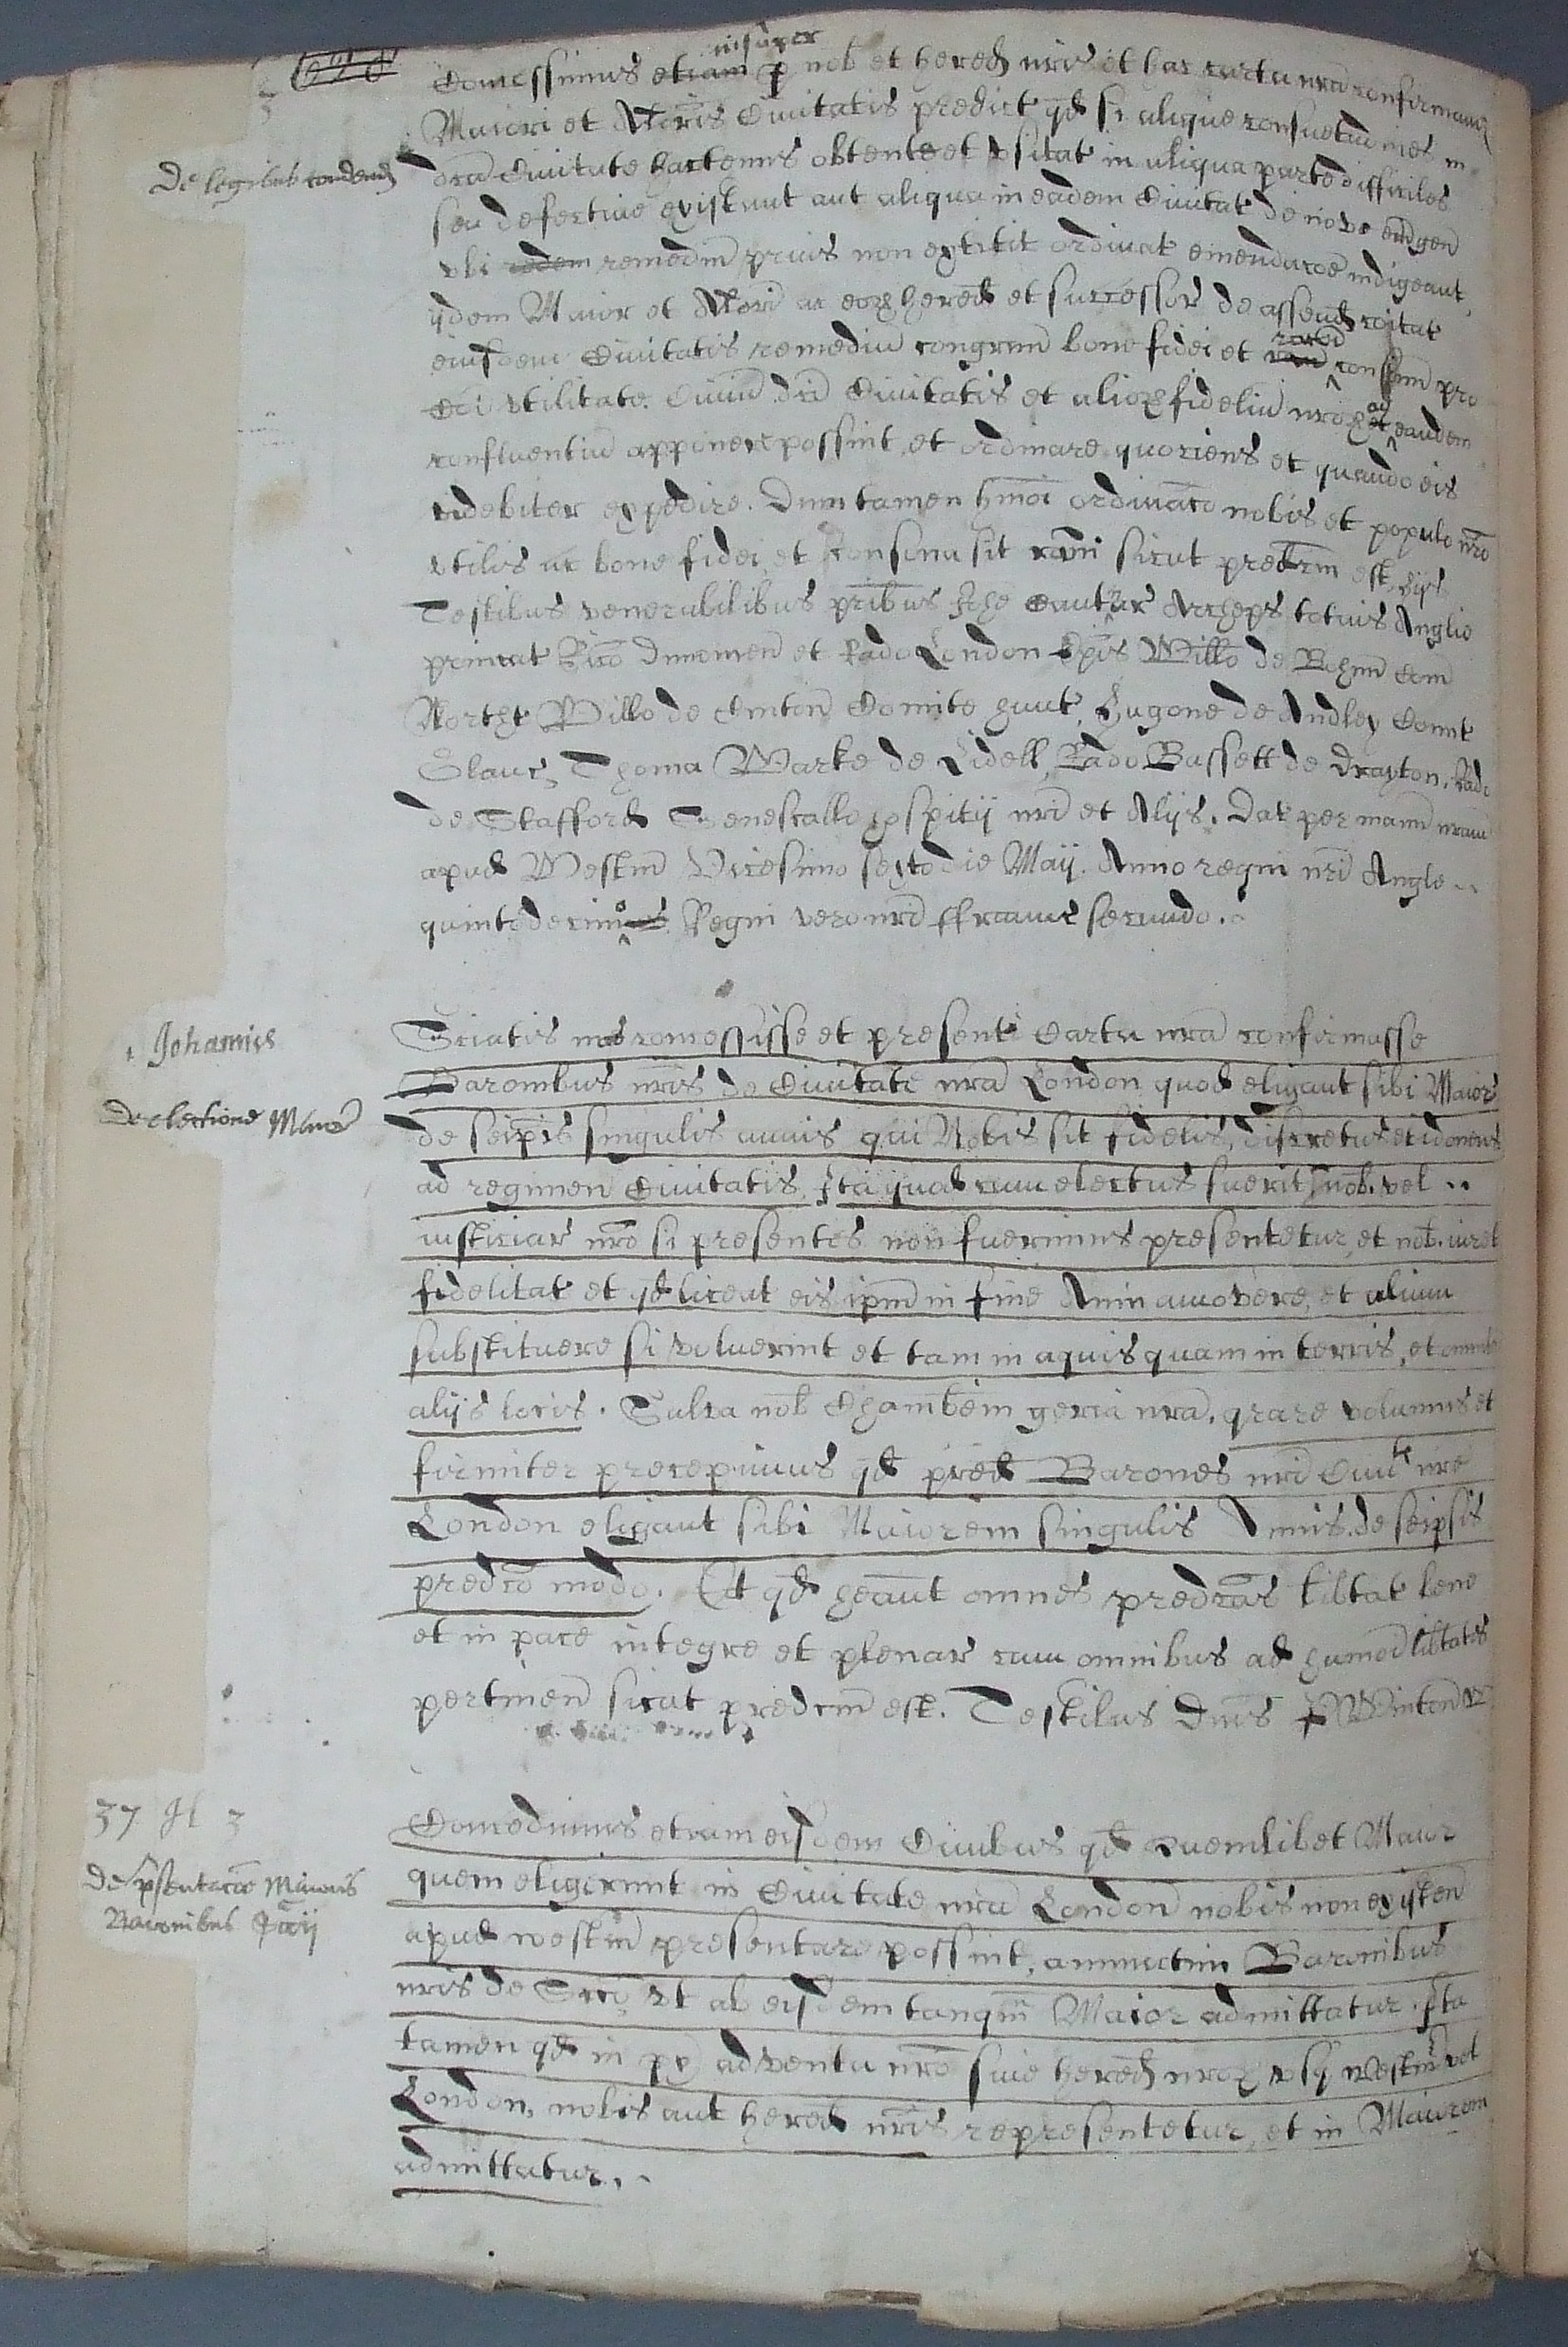 insuper
Concessimus etiam p nob et hered nris et hac carta nra confirmavi
Maiori et Alris Civitatis predict qd si alique consuetudines in
De legibus condend
dca Civitate hactenus obtente et usitat in aliqua parte difficiles
seu defective existant aut aliqua in eadem Civitat de novo emgen
ubi eodem remedm prius non extitit ordinat emendacoe indigeant
ijdem Maior et Alri ac eor hered et successor de assensu coitat
eiusdem Civitatis remediu congruu bone fidei et racoi consonu pro
Coi utilitate Civiu dce Civitatis et alior fideliu nror ad eandem
confluentiu apponere possint et ordinare quociens et quando eis
videbiter expedire. Dum tamen hmoi ordinaco nobis et populo nro
utilis ac bone fidei et consona sit raconi sicut predcm est Hijs
Testibus venerabilibus pribus Joh Cantuar Archeps totius Anglie
primat Rico Dunomen et Rado London Epis Willo de Bohun Com
Northt Willo de Clinton Comite Hunt, Hugone de Audley Comit
Glouc, Thoma Warke de Lidell, Rado Bassett de Drayton, Rado
de Stafford Senescallo hospitij nri et Alijs. Dat per manu nram
apud Westm Vicesimo sexto die Maij. Anno regni nri Anglie
quintodecimo Regni vero nri ffrancie secundo.
Johannis
Sciatis nos concessisse et presenti Carta nra confirmasse
Baronibus nris de Civitate nra London quod eligant sibi Maior
De electione Maior
de seipis singulis annis qui Nobis sit fidelis, discretus et idoneus
ad regimen Civitatis, Ita quod cum electus fuerit nob. vel
iusticiar nro si presentes non fuerimus presentetur, et nob. iuret
fidelitat et qd liceat eis ipm in fine Anni amovere, et alium
substituere si voluerint et tam in aquis quam in terris, et omnib
alijs locis. Salva nob Chamberngeria nra. quare volumus et
firmiter precepimus qd pred Barones nri Civitt nre
London eligant sibi Maiorem singulis Annis. de seipsis
predco modo. Et qd heant omnes predcas libtat bene
et in pace integre et plenar cum omnibus ad humod libtates
pertinen sicut predcm est. Testibus Dnis P Winton
37 H 3
Concedimus etiam eisdem Civibus qd quemlibet Maior
De psentacoe Maioris
Baronibus Sccij
quem eligerint in Civitate nra London nobis non existen
apud westm presentare possint, annuatim Baronibus
nris de Sccio, ut ab eisdem tanqm Maior admittatur. Ita
tamen qd in px adventu nro sive hered nror usq westm vel
London, nobis aut hered nris representetur, et in Maiorem
admittatur.